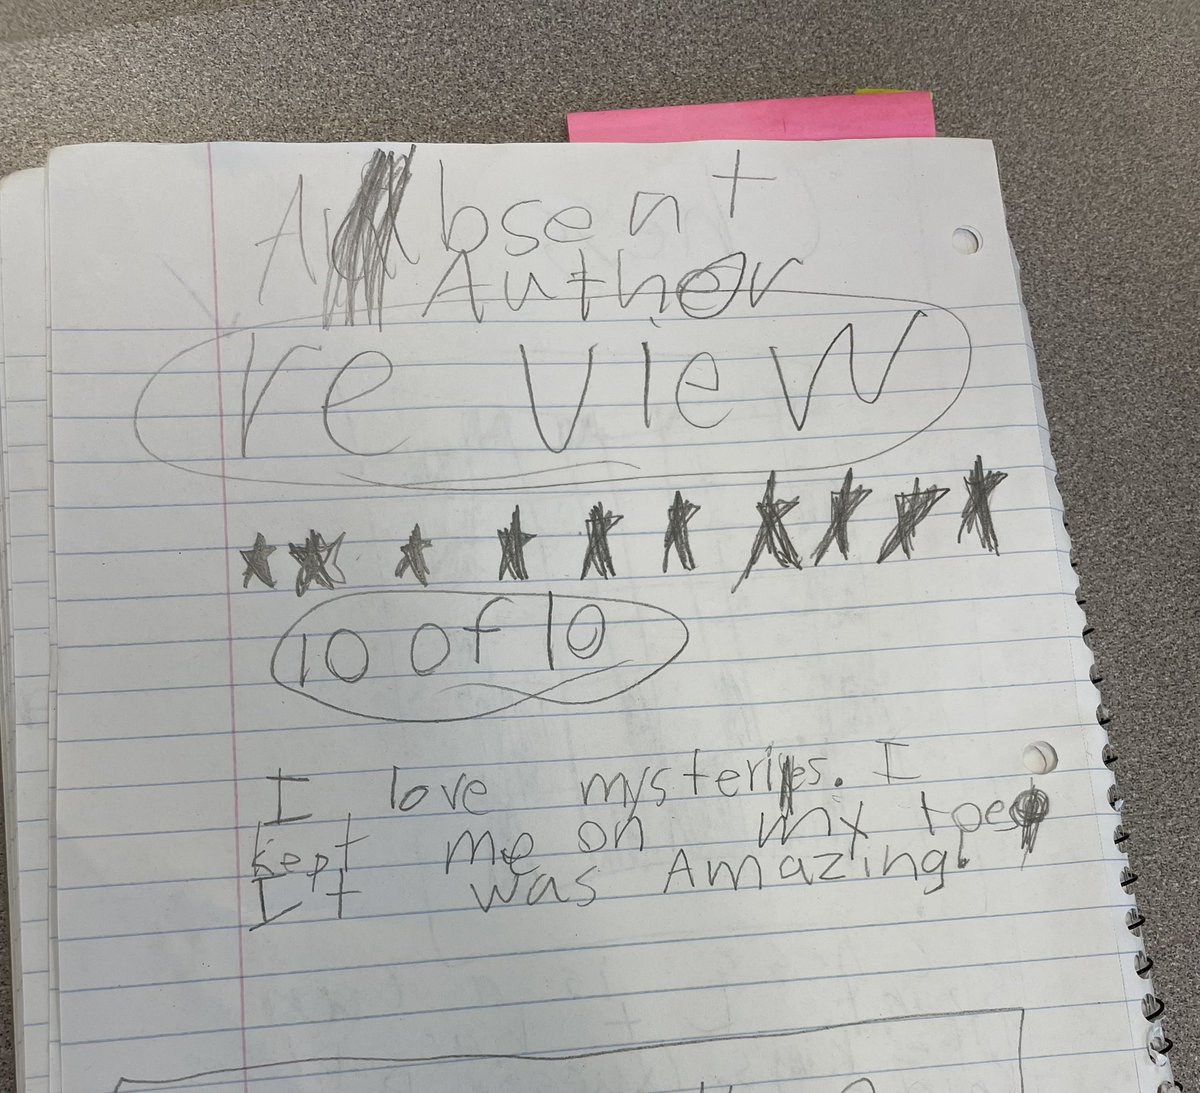 Absent
Author
re view
10 of 10
I love mysteries. I
kept me on my toes
It was Amazing!